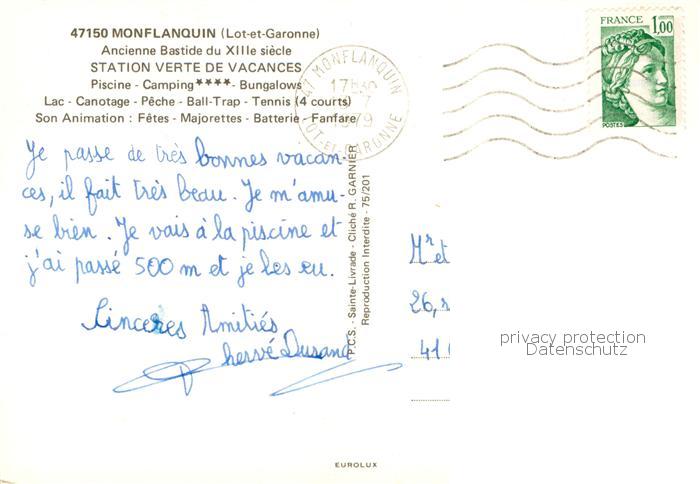 47150 MONFLANQUIN (Lot-et-Garonne)
Ancienne Bastide du XIIIe siècle
STATION VERTE DE VACANCES
Piscine - Camping**** - Bungalows
Lac - Canotage - Pêche - Ball-Trap - Tennis (4 courts)
Son Animation : Fêtes - Majorettes - Batterie - Fanfare
Je passe de très bonnes vacan-
ces, il fait très beau. Je m'amu-
se bien. Je vais à la piscine et
j'ai passé 500 m et je les eu.
Sinceres Amitiés
hervé Dusand
P.C.S. - Sainte-Livrade - Cliché R. GARNIER
Reproduction Interdite - 75/201
47 MONFLANQUIN
17H30
LOT-ET-GARONNE
FRANCE 1,00
POSTES
Mr et
26, r
41
privacy protection
Datenschutz
EUROLUX